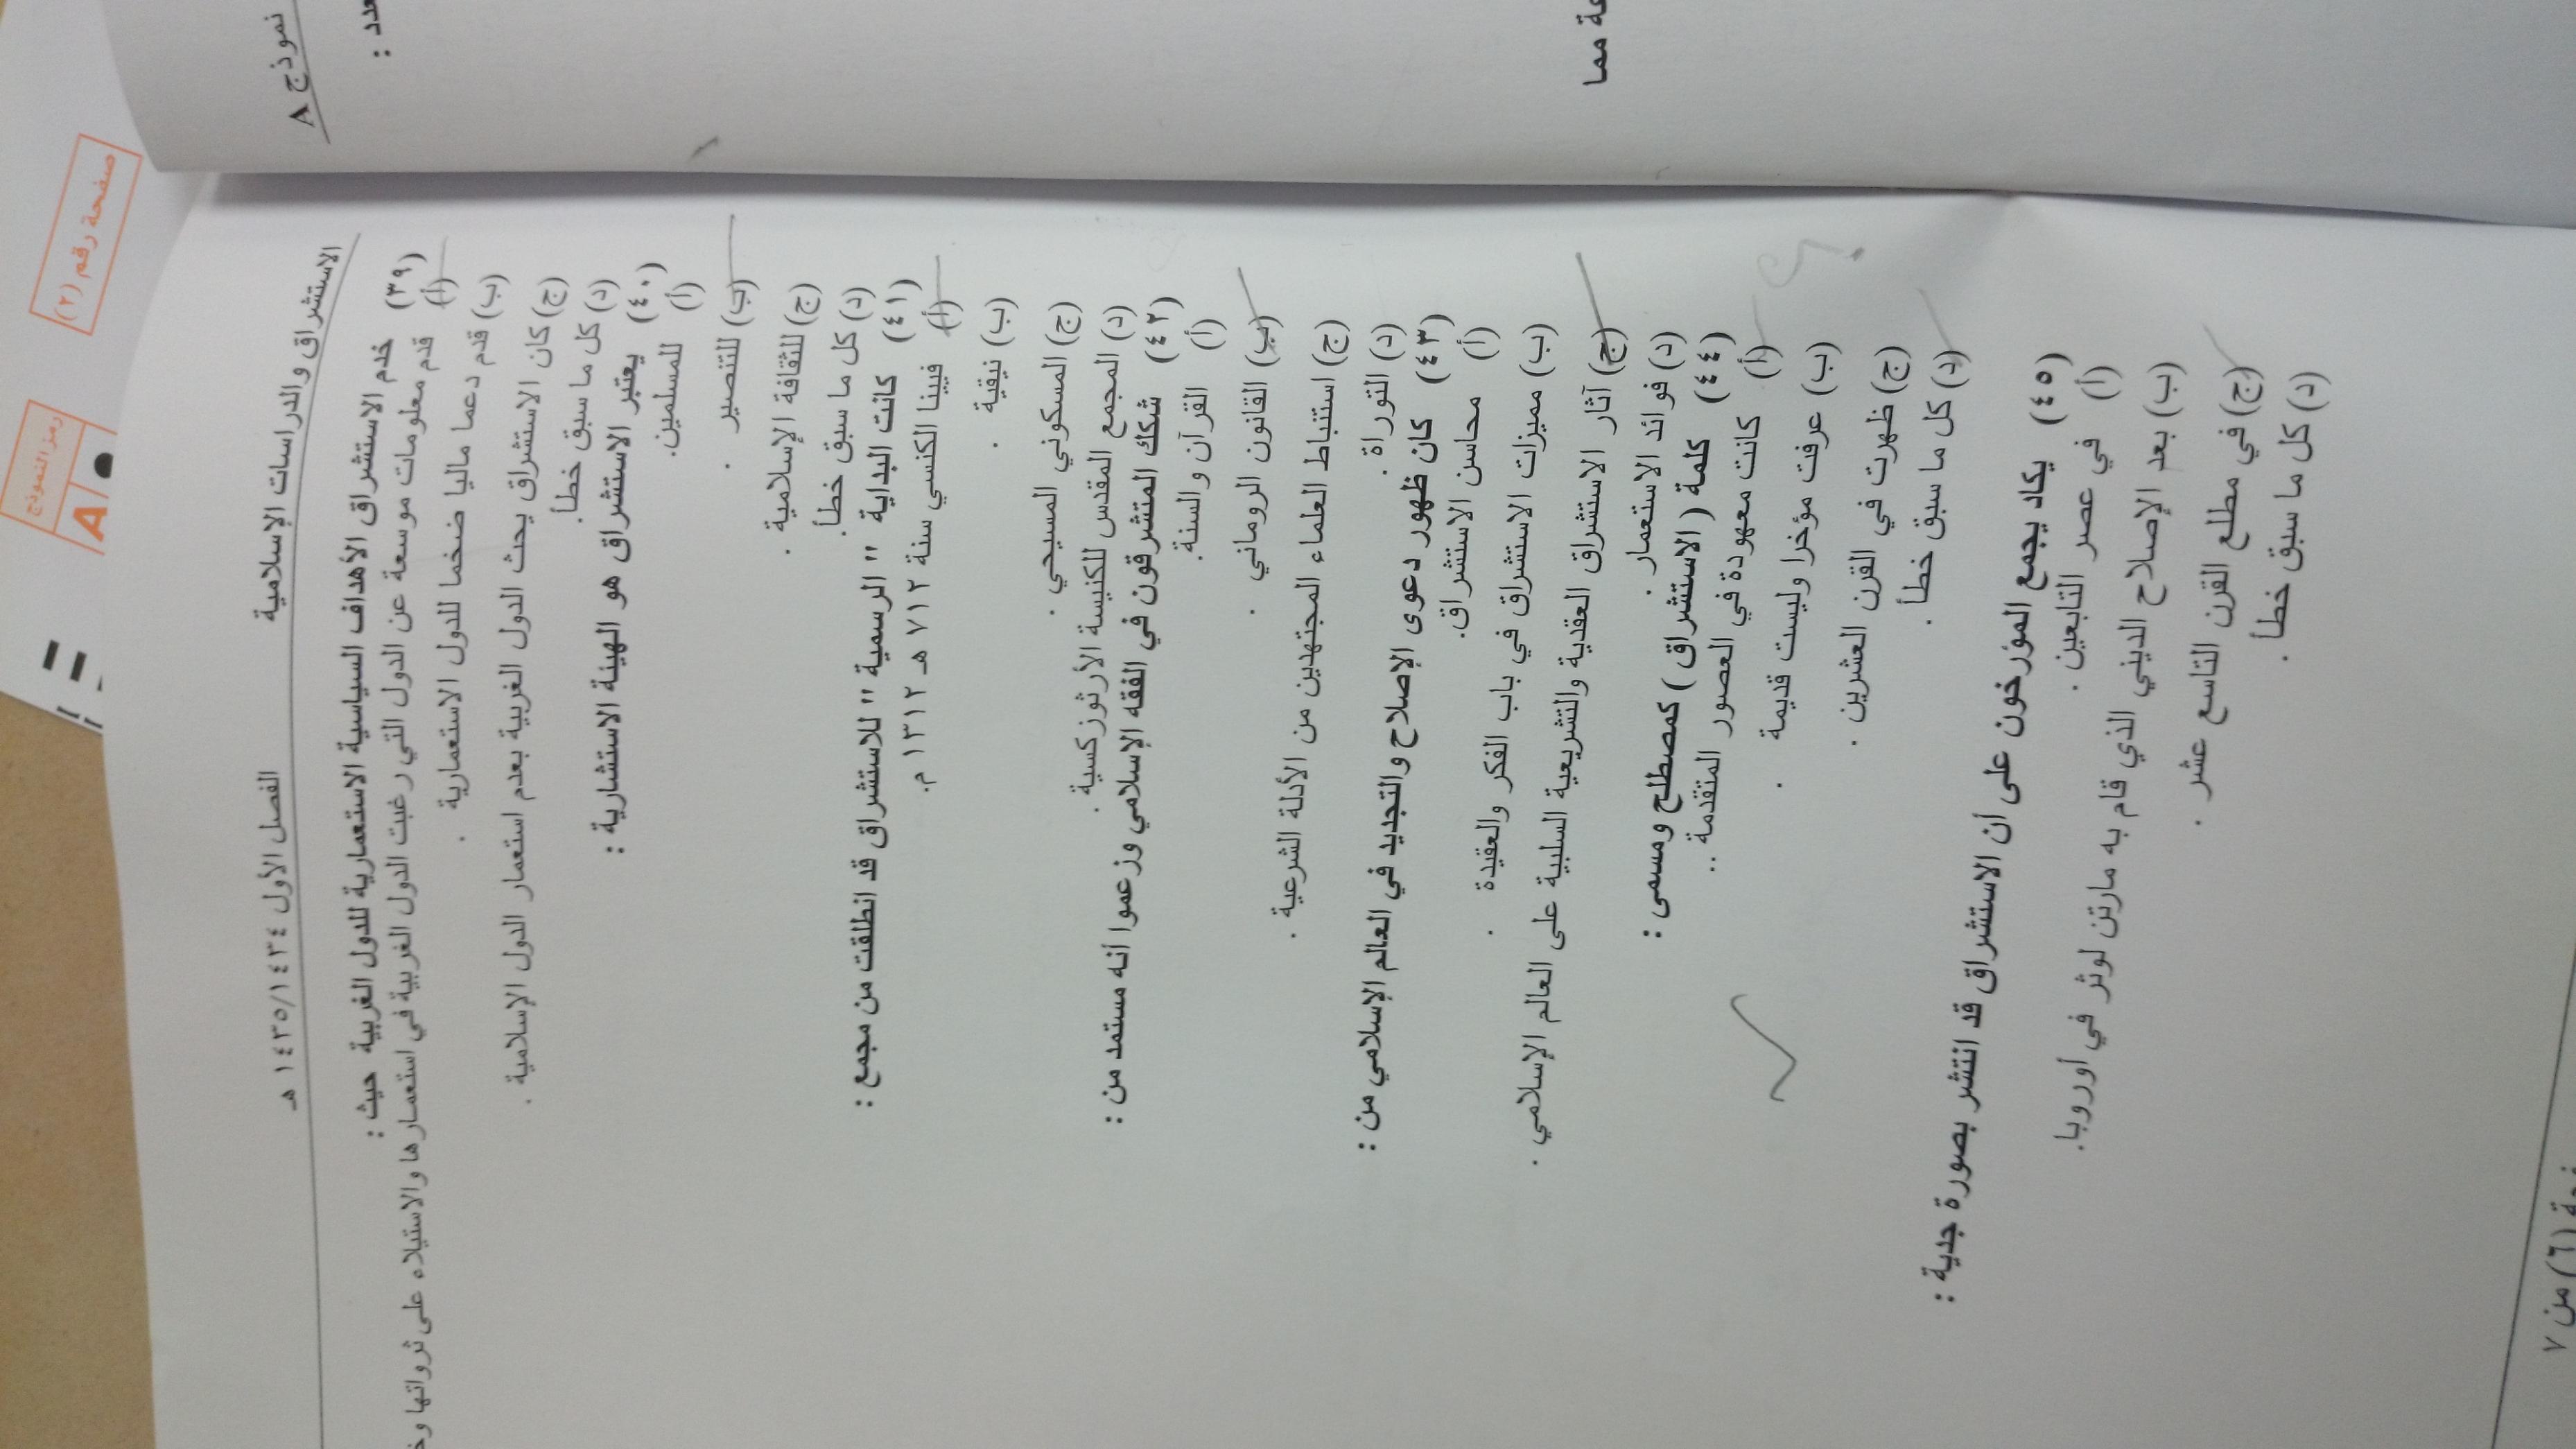 نموذج A
صفحة رقم (٢)
رمز النموذج
A
الاستشراق والدراسات الإسلامية
الفصل الأول ١٤٣٤/١٤٣٥ هـ
(٣٩) خدم الاستشراق الأهداف السياسية الاستعمارية للدول الغربية حيث :
(أ) قدم معلومات موسعة عن الدول التي رغبت الدول الغربية في استعمارها والاستيلاء على ثرواتها
(ب) قدم دعما ماليا ضخما للدول الاستعمارية .
(ج) كان الاستشراق يحث الدول الغربية بعدم استعمار الدول الإسلامية .
(د) كل ما سبق خطأ.
(٤٠) يعتبر الاستشراق هو الهيئة الاستشارية :
(أ) للمسلمين.
(ب) للتنصير .
(ج) للثقافة الإسلامية .
(د) كل ما سبق خطأ.
(٤١) كانت البداية " الرسمية " للاستشراق قد انطلقت من مجمع :
(أ) فيينا الكنسي سنة ٧١٢ هـ ١٣١٢ م.
(ب) نيقية .
(ج) المسكوني المسيحي .
(د) المجمع المقدس للكنيسة الأرثوزكسية .
(٤٢) شكك المتشرقون في الفقه الإسلامي وزعموا أنه مستمد من :
(أ) القرآن والسنة.
(ب) القانون الروماني .
(ج) استنباط العلماء المجتهدين من الأدلة الشرعية .
(د) التوراة .
(٤٣) كان ظهور دعوى الإصلاح والتجديد في العالم الإسلامي من :
(أ) محاسن الاستشراق.
(ب) مميزات الاستشراق في باب الفكر والعقيدة .
(ج) آثار الاستشراق العقدية والتشريعية السلبية على العالم الإسلامي .
(د) فوائد الاستعمار .
(٤٤) كلمة ( الاستشراق ) كمصطلح ومسمى :
(أ) كانت معهودة في العصور المتقدمة ..
(ب) عرفت مؤخرا وليست قديمة .
(ج) ظهرت في القرن العشرين .
(د) كل ما سبق خطأ .
(٤٥) يكاد يجمع المؤرخون على أن الاستشراق قد انتشر بصورة جدية :
(أ) في عصر التابعين .
(ب) بعد الإصلاح الديني الذي قام به مارتن لوثر في أوروبا.
(ج) في مطلع القرن التاسع عشر .
(د) كل ما سبق خطأ .
(٦) من ٧